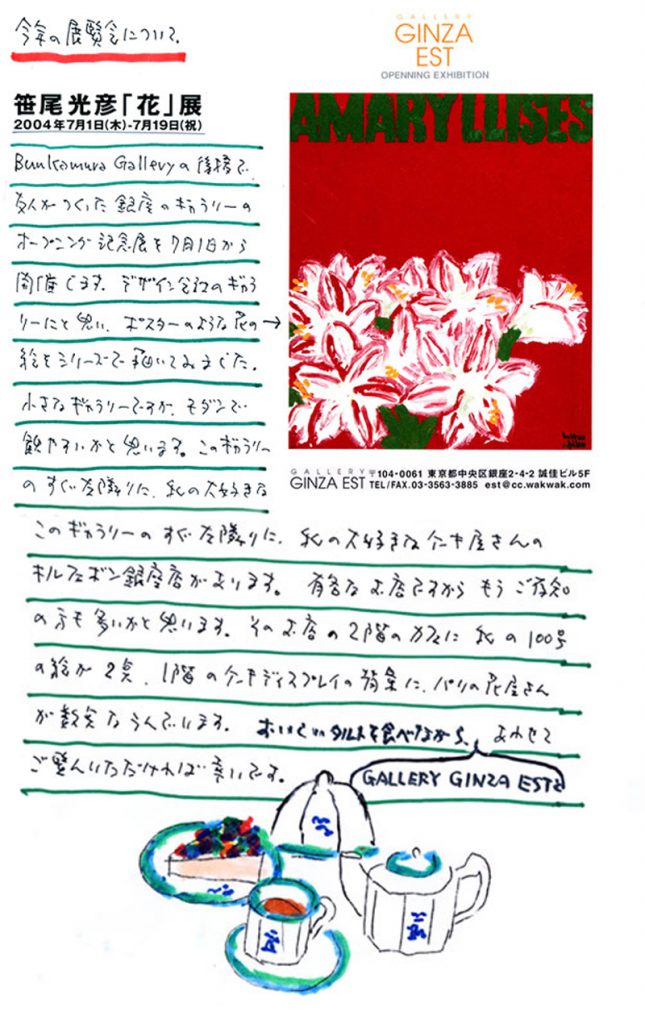 今年の展覧会について。
GALLERY
GINZA
EST
OPENNING EXHIBITION
笹尾光彦「花」展
2004年7月1日(木)-7月19日(祝)
AMARYLLISES
Bunkamura Galleryの後援で、
友人がつくった銀座のギャラリーの
オープニング記念展を7月1日から
開催します。デザイン会社のギャラ
リーにと思い、ポスターのような花の→
絵をシリーズで描いてみました。
小さなギャラリーですが、モダンで
観やすいかと思います。このギャラリー
のすぐ左隣りに、私の大好きな
GALLERY
GINZA EST
〒104-0061 東京都中央区銀座2-4-2 誠佳ビル5F
TEL/FAX.03-3563-3885 est@cc.wakwak.com
このギャラリーのすぐ左隣りに、私の大好きなケーキ屋さんの
キルフェボン銀座店があります。有名なお店ですからもうご存知
の方も多いかと思います。そのお店の2階のカフェに私の100号
の絵が2点、1階のケーキディスプレイの背景に、パリの花屋さん
が数点ならんでいます。おいしいタルトを食べながら、あわせて
GALLERY GINZA ESTと
ご覧いただければ幸いです。